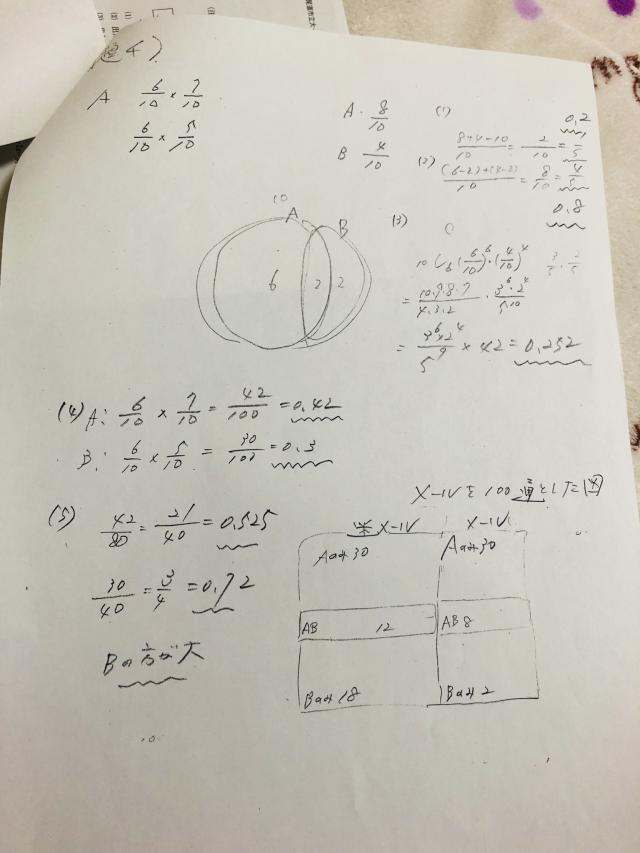 A 6/10 × 7/10
6/10 × 5/10
A 8/10
B 4/10
(1) 0.2
8+4-10/10 = 2/10 = 1/5
(2) (6-2)+(4-2)/10 = 8/10 = 4/5
0.8
10
A B
6 2 2
(3)
10C6 (6/10)^6 · (4/10)^4 3/5 · 2/5
= 10·9·8·7/4·3·2 · 3^6·2^4/5^10
= 3^6×2^4/5^9 × 42 = 0.252
(4) A: 6/10 × 7/10 = 42/100 = 0.42
B: 6/10 × 5/10 = 30/100 = 0.3
X-IVを100通とした図
(5) 42/80 = 21/40 = 0.525
30/40 = 3/4 = 0.72
Bの方が大
X-IV X-IV
Aのみ30 Aのみ30
AB 12 AB 8
Bのみ18 Bのみ2